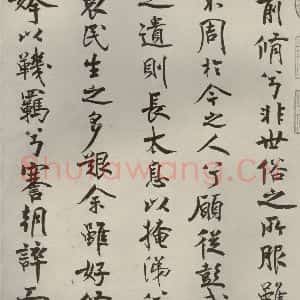 前脩兮非世俗之所服雖
不周於今之人兮願從彭咸
之遺則長太息以掩涕
哀民生之多艱余雖好脩
以鞿羈兮謇朝誶而
Shufawang.Cn